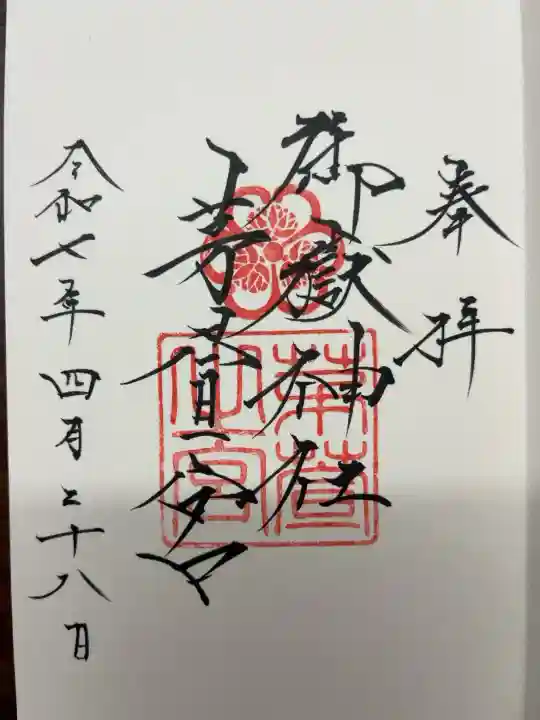 奉拝
御嶽神社
茅萱仙宮
令和七年四月二十八日